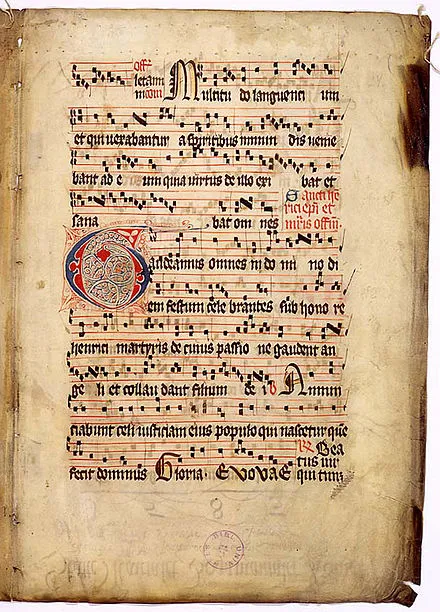 Off
letam
incom Multitu do languenci um
et qui vexabantur a spiritibus inmun dis venie
bant ad e um quia virtus de illo exi bat et
sana bat om nes
Sancti he
rici epi et
mris offm
Gaudeamus omnes in do mi no di
em festum cele brantes sub hono re
henrici martyris de cuius passio ne gaudent an
ge li et collau dant filium de i Annun
ciabunt celi iusticiam eius populo qui nascetur que
fecit dominus Gloria. EVOVAE
R Bea
tus vir
qui tim